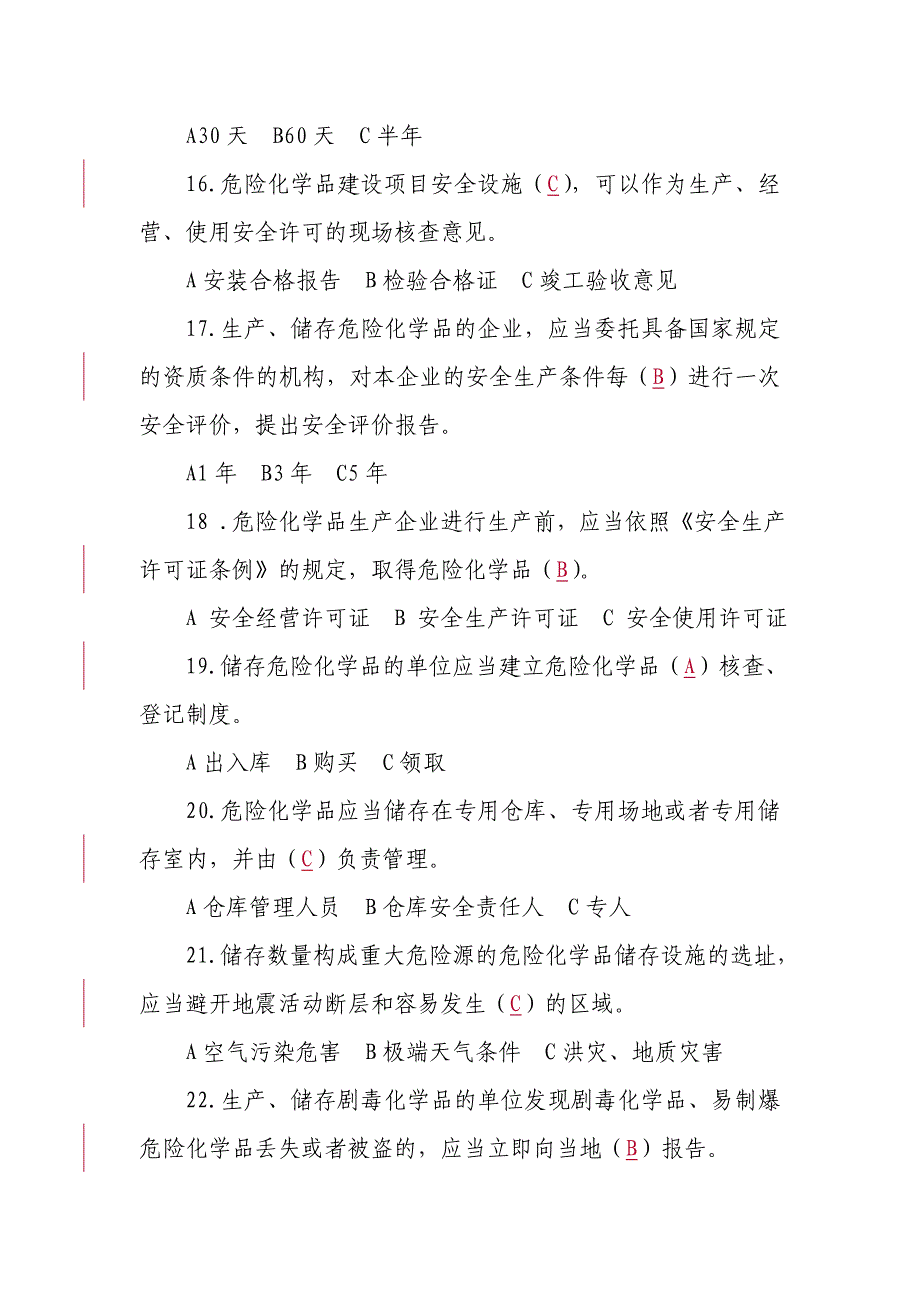 A30天　B60天　C半年
16.危险化学品建设项目安全设施（C），可以作为生产、经
营、使用安全许可的现场核查意见。
A安装合格报告　B检验合格证　C竣工验收意见
17.生产、储存危险化学品的企业，应当委托具备国家规定
的资质条件的机构，对本企业的安全生产条件每（B）进行一次
安全评价，提出安全评价报告。
A1年　B3年　C5年
18 .危险化学品生产企业进行生产前，应当依照《安全生产
许可证条例》的规定，取得危险化学品（B）。
A 安全经营许可证　B 安全生产许可证　C 安全使用许可证
19.储存危险化学品的单位应当建立危险化学品（A）核查、
登记制度。
A出入库　B购买　C领取
20.危险化学品应当储存在专用仓库、专用场地或者专用储
存室内，并由（C）负责管理。
A仓库管理人员　B仓库安全责任人　C专人
21.储存数量构成重大危险源的危险化学品储存设施的选址，
应当避开地震活动断层和容易发生（C）的区域。
A空气污染危害　B极端天气条件　C洪灾、地质灾害
22.生产、储存剧毒化学品的单位发现剧毒化学品、易制爆
危险化学品丢失或者被盗的，应当立即向当地（B）报告。